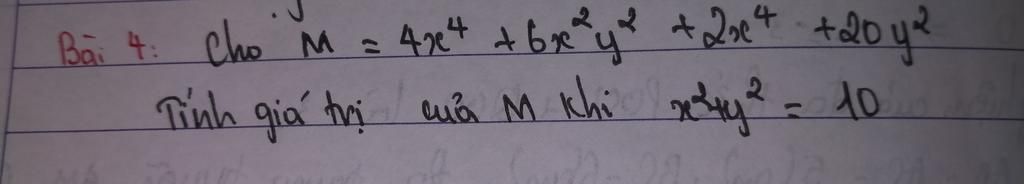 Bài 4: Cho M = 4x⁴ + 6x²y² + 2x⁴ + 20y²
Tính giá trị của M khi x²+y² = 10